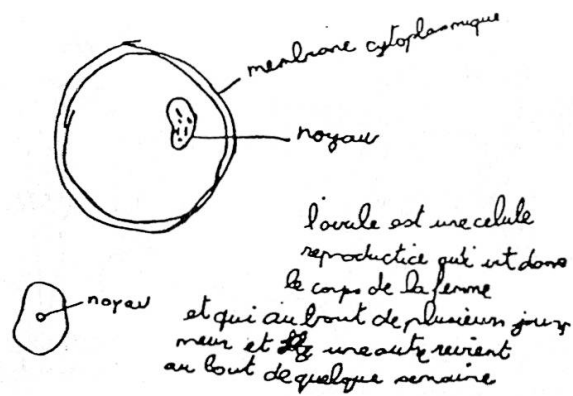 membrane cytoplasmique
noyau
l'ovule est une celule
reproductice qui vit dans
le corps de la femme
noyau
et qui au bout de plusieur jour
meur et une autre revient
au bout de quelque semaine